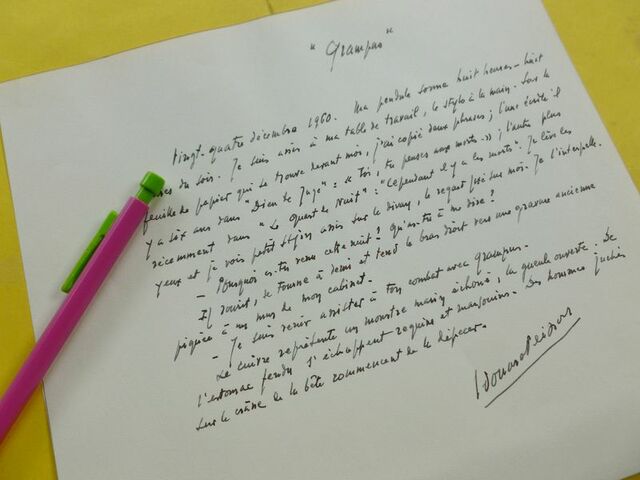 "Grampus"
Vingt-quatre décembre 1960. Ma pendule sonne huit heures - huit
heures du soir. Je suis assis à ma table de travail, le stylo à la main. Sur la
feuille de papier qui se trouve devant moi, j'ai copié deux phrases; l'une écrite il
y a six ans dans "Dieu te juge": "Toi, tu penses aux morts"; l'autre plus
récemment dans "Le Quart de Nuit": "Cependant il y a les morts". Je lève les
yeux et je vois petit assis sur le divan, le regard fixé sur moi. Je l'interpelle.
- Pourquoi es-tu venu cette nuit? Qu'as-tu à me dire?
Il sourit, se tourne à demi et tend le bras droit vers une gravure ancienne
piquée à un mur de mon cabinet.
- Je suis venu assister à ton combat avec Grampus.
Le cuivre représente un monstre marin échoué, la gueule ouverte. De
l'estomac fendu s'échappent requins et marsouins. Des hommes juchés
sur le crâne de la bête commencent de la dépecer.
Edouard Peisson